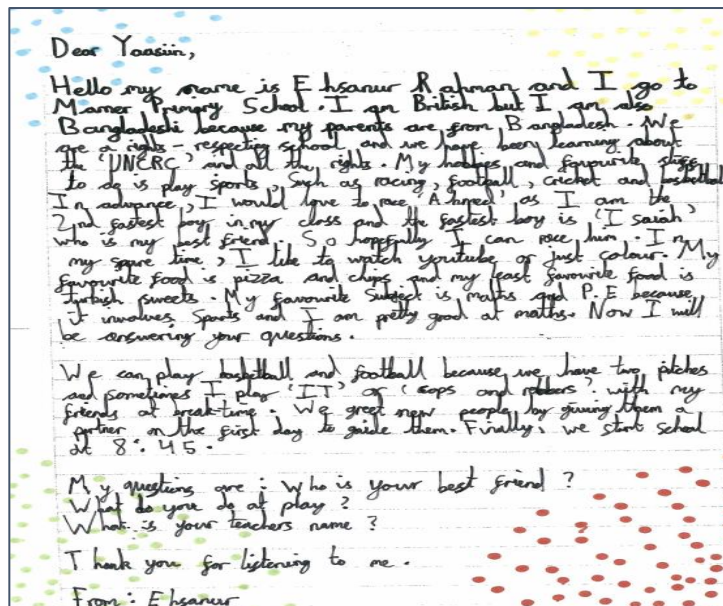 Dear Yaasiin,
Hello my name is Ehsanur Rahman and I go to
Marner Primary School. I am British but I am also
Bangladeshi because my parents are from Bangladesh. We
are a rights-respecting school and we have been learning about
the 'UNCRC' and all the rights. My hobbies and favourite
to do is play sports, such as racing, football, cricket and basketball
In advance, I would love to race 'Ahmed' as I am the
2nd fastest boy in my class and the fastest boy is 'Isaiah'
who is my best friend. So hopefully I can race him. In
my spare time, I like to watch youtube or just colour. My
favourite food is pizza and chips and my least favourite food is
turkish sweets. My favourite Subject is maths and P.E because
it involves Sports and I am pretty good at maths. Now I will
be answering your questions.
We can play basketball and football because we have two pitches
and sometimes I play 'IT' or 'cops and robbers' with my
friends at break-time. We greet new people by giving them a
partner on the first day to guide them. Finally, we start school
at 8:45.
My questions are: Who is your best friend?
What do you do at play?
What is your teachers name?
Thank you for listening to me.
From: Ehsanur